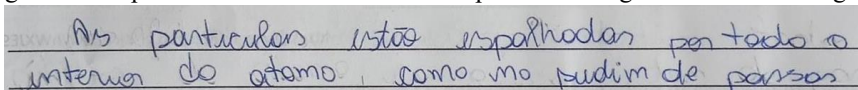 As particulas estão espalhadas por todo o
interior do atomo, como no pudim de passas